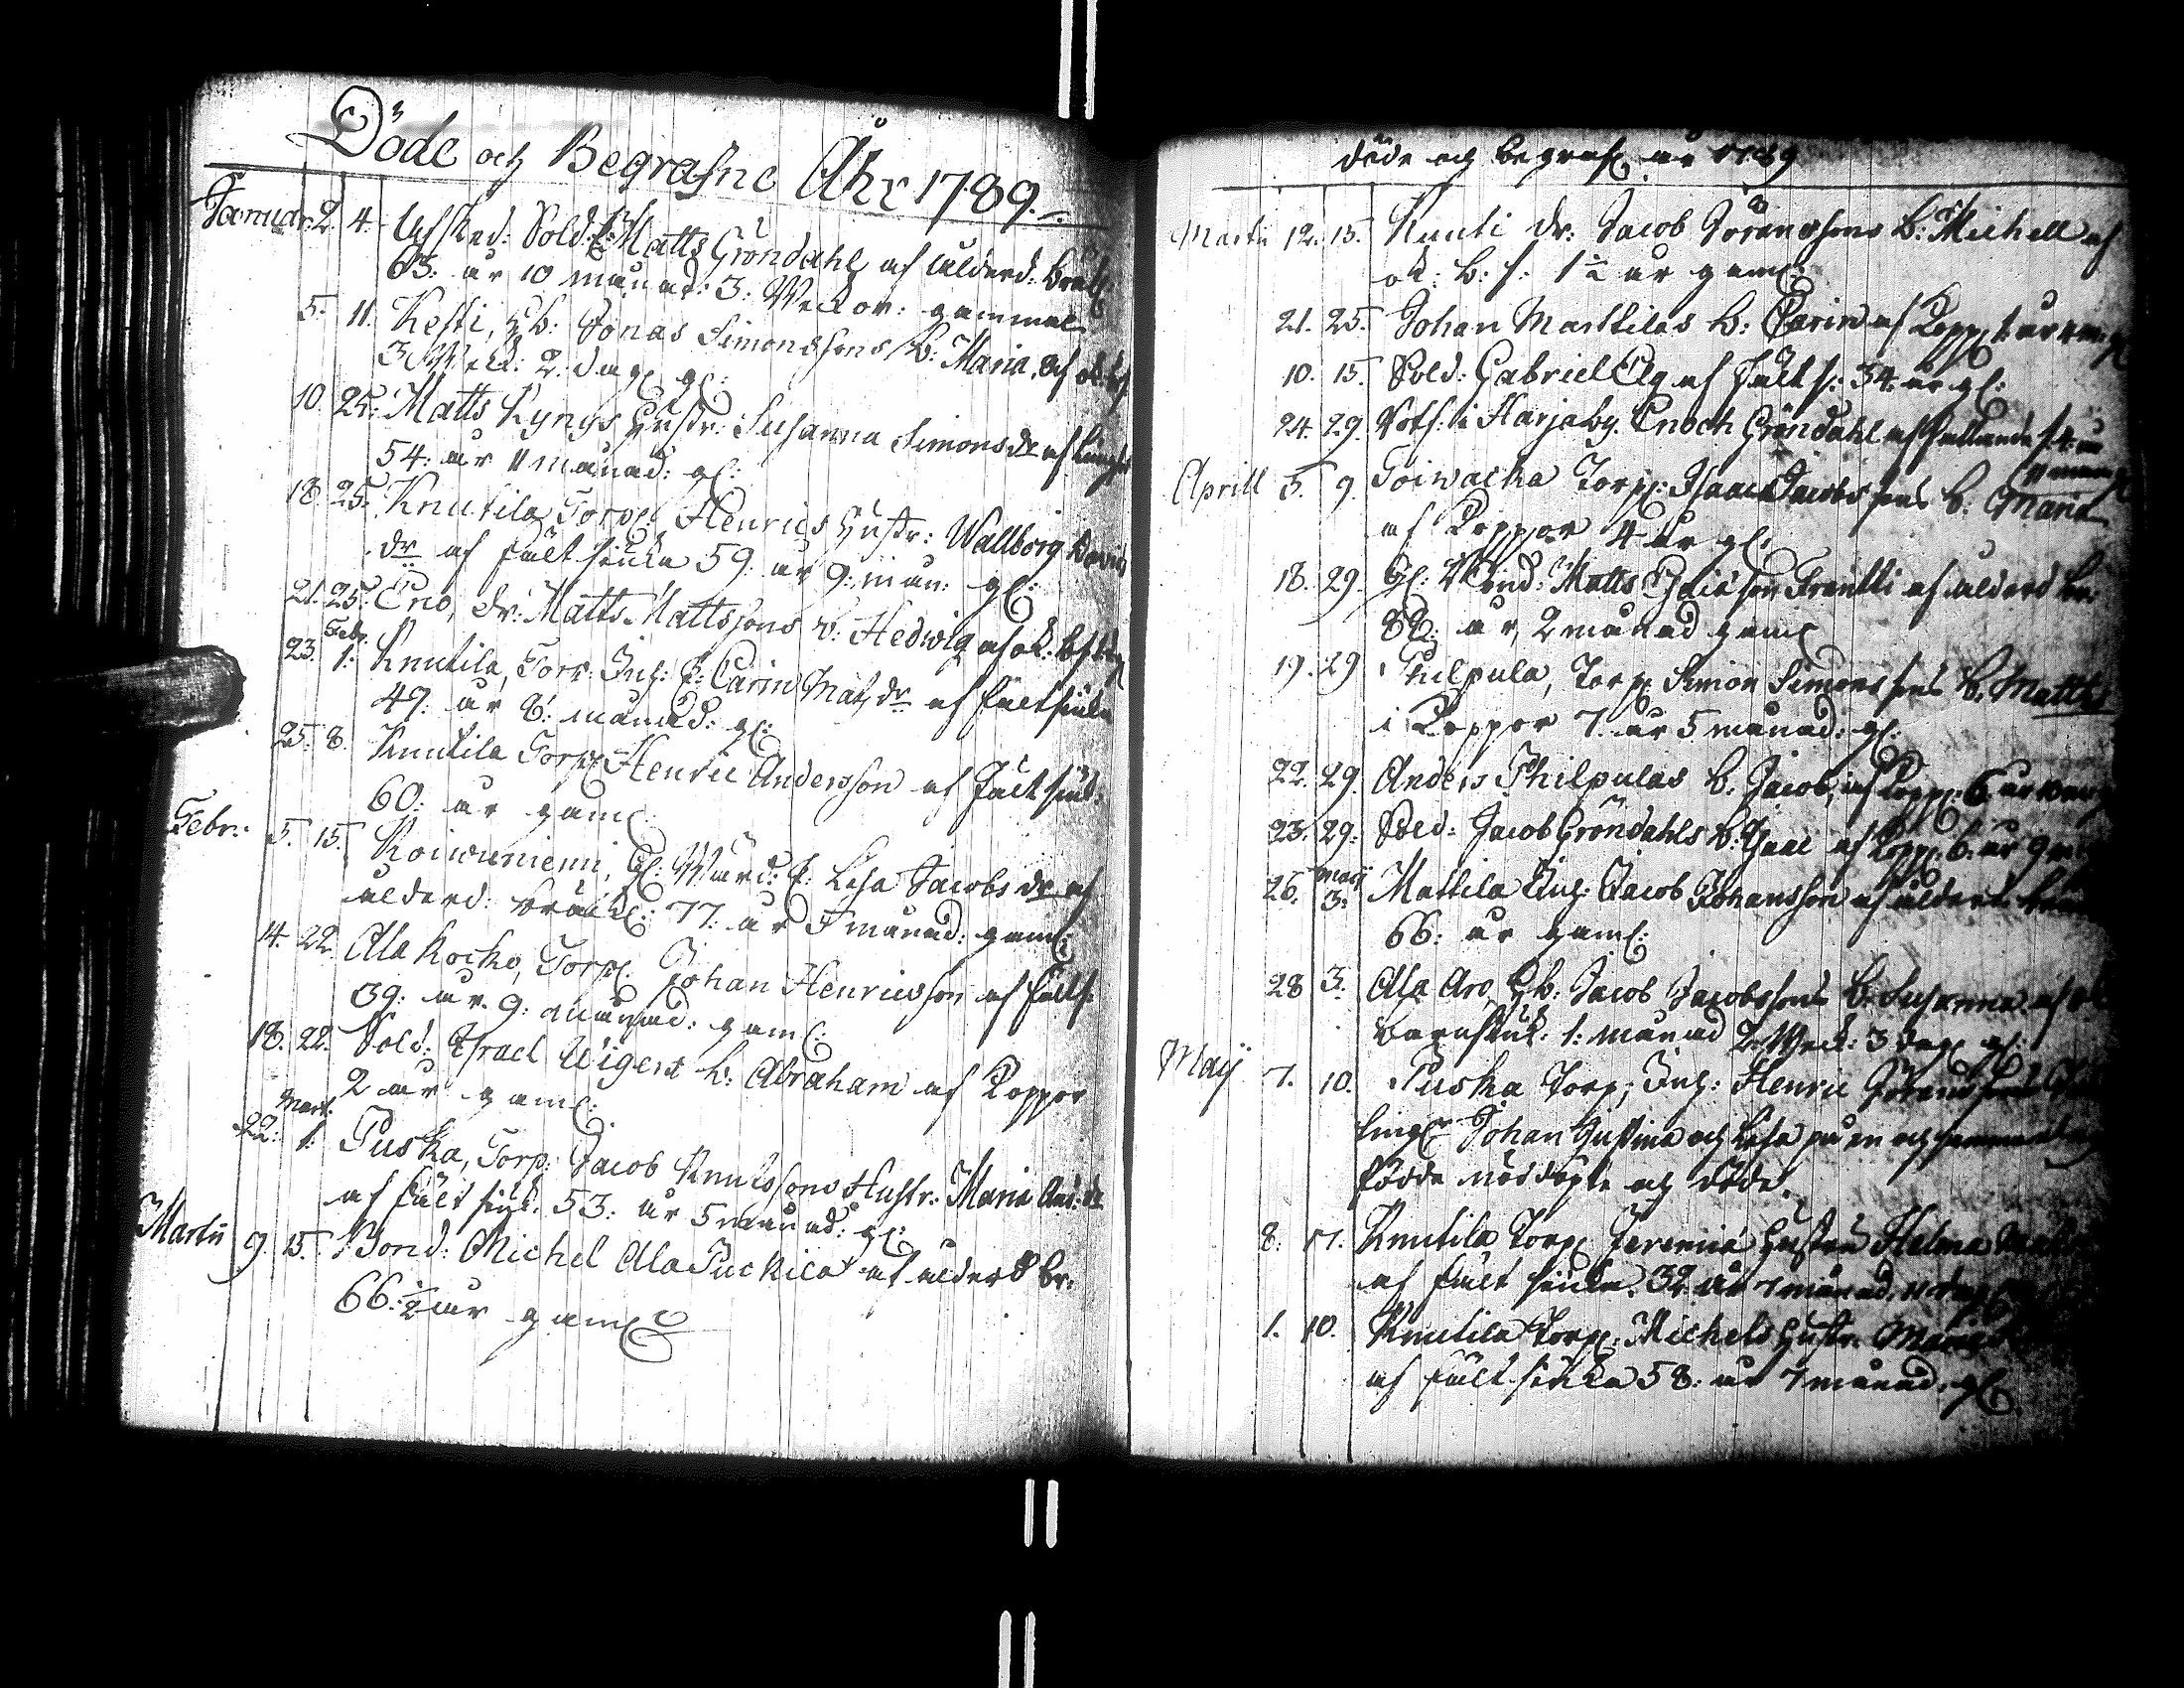 Döde och Begrafne Åhr 1789.
Januar: 2. 4. Afsked: Sold: E: Matts Gröndahl af ålderd: bräckl:
63. år 10 månad: 3. Weckor: gammal
5. 11. Kesti, Hb: Jonas Simonssons b: Maria, af ok: bsj
3 Weck: 2. dag gl:
10. 25. Matts Kyngs Hustr: Susanna Simons dr af
54: år 11 månad: gl:
18. 25. Knutila Torp: Henrics Hustr: Wallborg
dr af fältsiuka 59: år 9: mån: gl:
21. 25. Eno, dr: Matts Mattssons b: Hedwig af ok: bsj
23. Febr. 1. Knutila, Torp: Inh: E: Carin Mats dr af fältsiuka
49: år 8: månad: gl:
25. 8. Knutila Torp Henric Andersson af fältsiuk:
60: år gam:
Febr: 5. 15. Koiwuniemi, Gl: Wärd: E: Lisa Jacobs dr af
ålderd: bräckl: 77: år 5 månad: gaml:
14. 22. Ala Kocko, Torp: Johan Henricsson af fälts:
39: år 9: månad: gaml:
18. 22. Sold: Israel Wigert b: Abraham af Koppor
2 år gaml:
22: Mart. 1: Puska, Torp: Jacob Knutssons Hustr: Maria And: dr
af fältsiuk: 53: år 5 månad: gl:
Martii 9. 15. Bond: Michel Ala Puckila af ålderd br:
66: 1/2 år gaml:
döde och begrafn: år 1789
Martii 12. 15. Knuti dr: Jacob Göranssons b: Michell af
ok: b: s: 1 1/2 år gaml:
21. 25. Johan Marttilas b: Carin af Kopp: 1: år
10. 15. Sold: Gabriel Elg af fälts: 34: år gl:
24. 29. i Harjaby. Enoch Gröndahl af
Aprill 5. 9. Toiwacka Torp: Isaac Jacobssons b: Maria
af Koppor 4 år gl:
18. 29. Gl: Wärd: Matts Ersson Frantti af ålderd br:
82: år, 2 månad gaml
19. 29 Philpula, Torp Simon Simonssons b: Matts
i Koppor 7. år 5 månad: gl:
22. 29. Anders Philpulas b: Jacob, af Kopp: 6: år
23. 29: Sold: Jacob Gröndahls b: Isac af Kopp: 6: år 9
26. Maij 3: Mattila Inh: Jacob Johansson af ålderd:
66: år gaml:
28 3. Ala Aro, Hb: Jacob Jacobssons b: Susanna af ok
barnsiuk: 1: månad 2. Weck: 3 dag gl:
Maij 7. 10. Puska Torp, Inh: Henric Görans
Johan Justina och Lisa på en och samma dag
födde nöddöpte och döde.
8. 17. Knutila Torp Jeremiä Hustru Helena
af fältsiuka. 32 år 7 månad. 11 dag
1. 10. Knutila Torp: Michels Hustr: Maria
af fältsiuka 58: år 7 månad: gl: